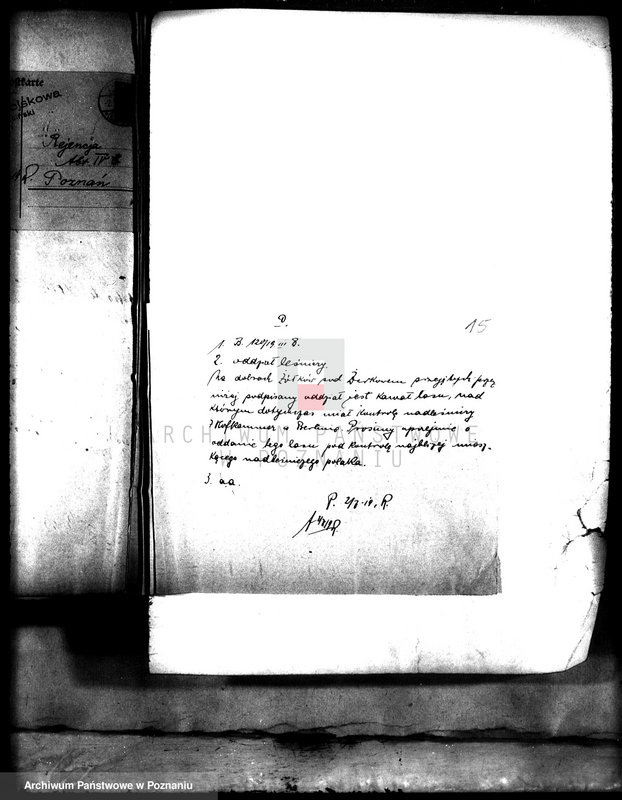 Postkarte
Rejencja
Abt. IV B
Poznań
15
D.
1. B. 120/19 III B.
2. oddział leśniczy.
Na dobrach Żółków pod Żerkowem przyjętych przez
niżej podpisany oddział jest kawał lasu, nad
którym dotychczas miał kontrolę nadleśniczy
Hofkammer z Berlina. Prosimy uprzejmie o
oddanie tego lasu pod kontrolę najbliżej miesz-
kającego nadleśniczego polaka.
3. aa.
P. 2/7.19. R.
ARCHIWUM PAŃSTWOWE
W POZNANIU
Archiwum Państwowe w Poznaniu